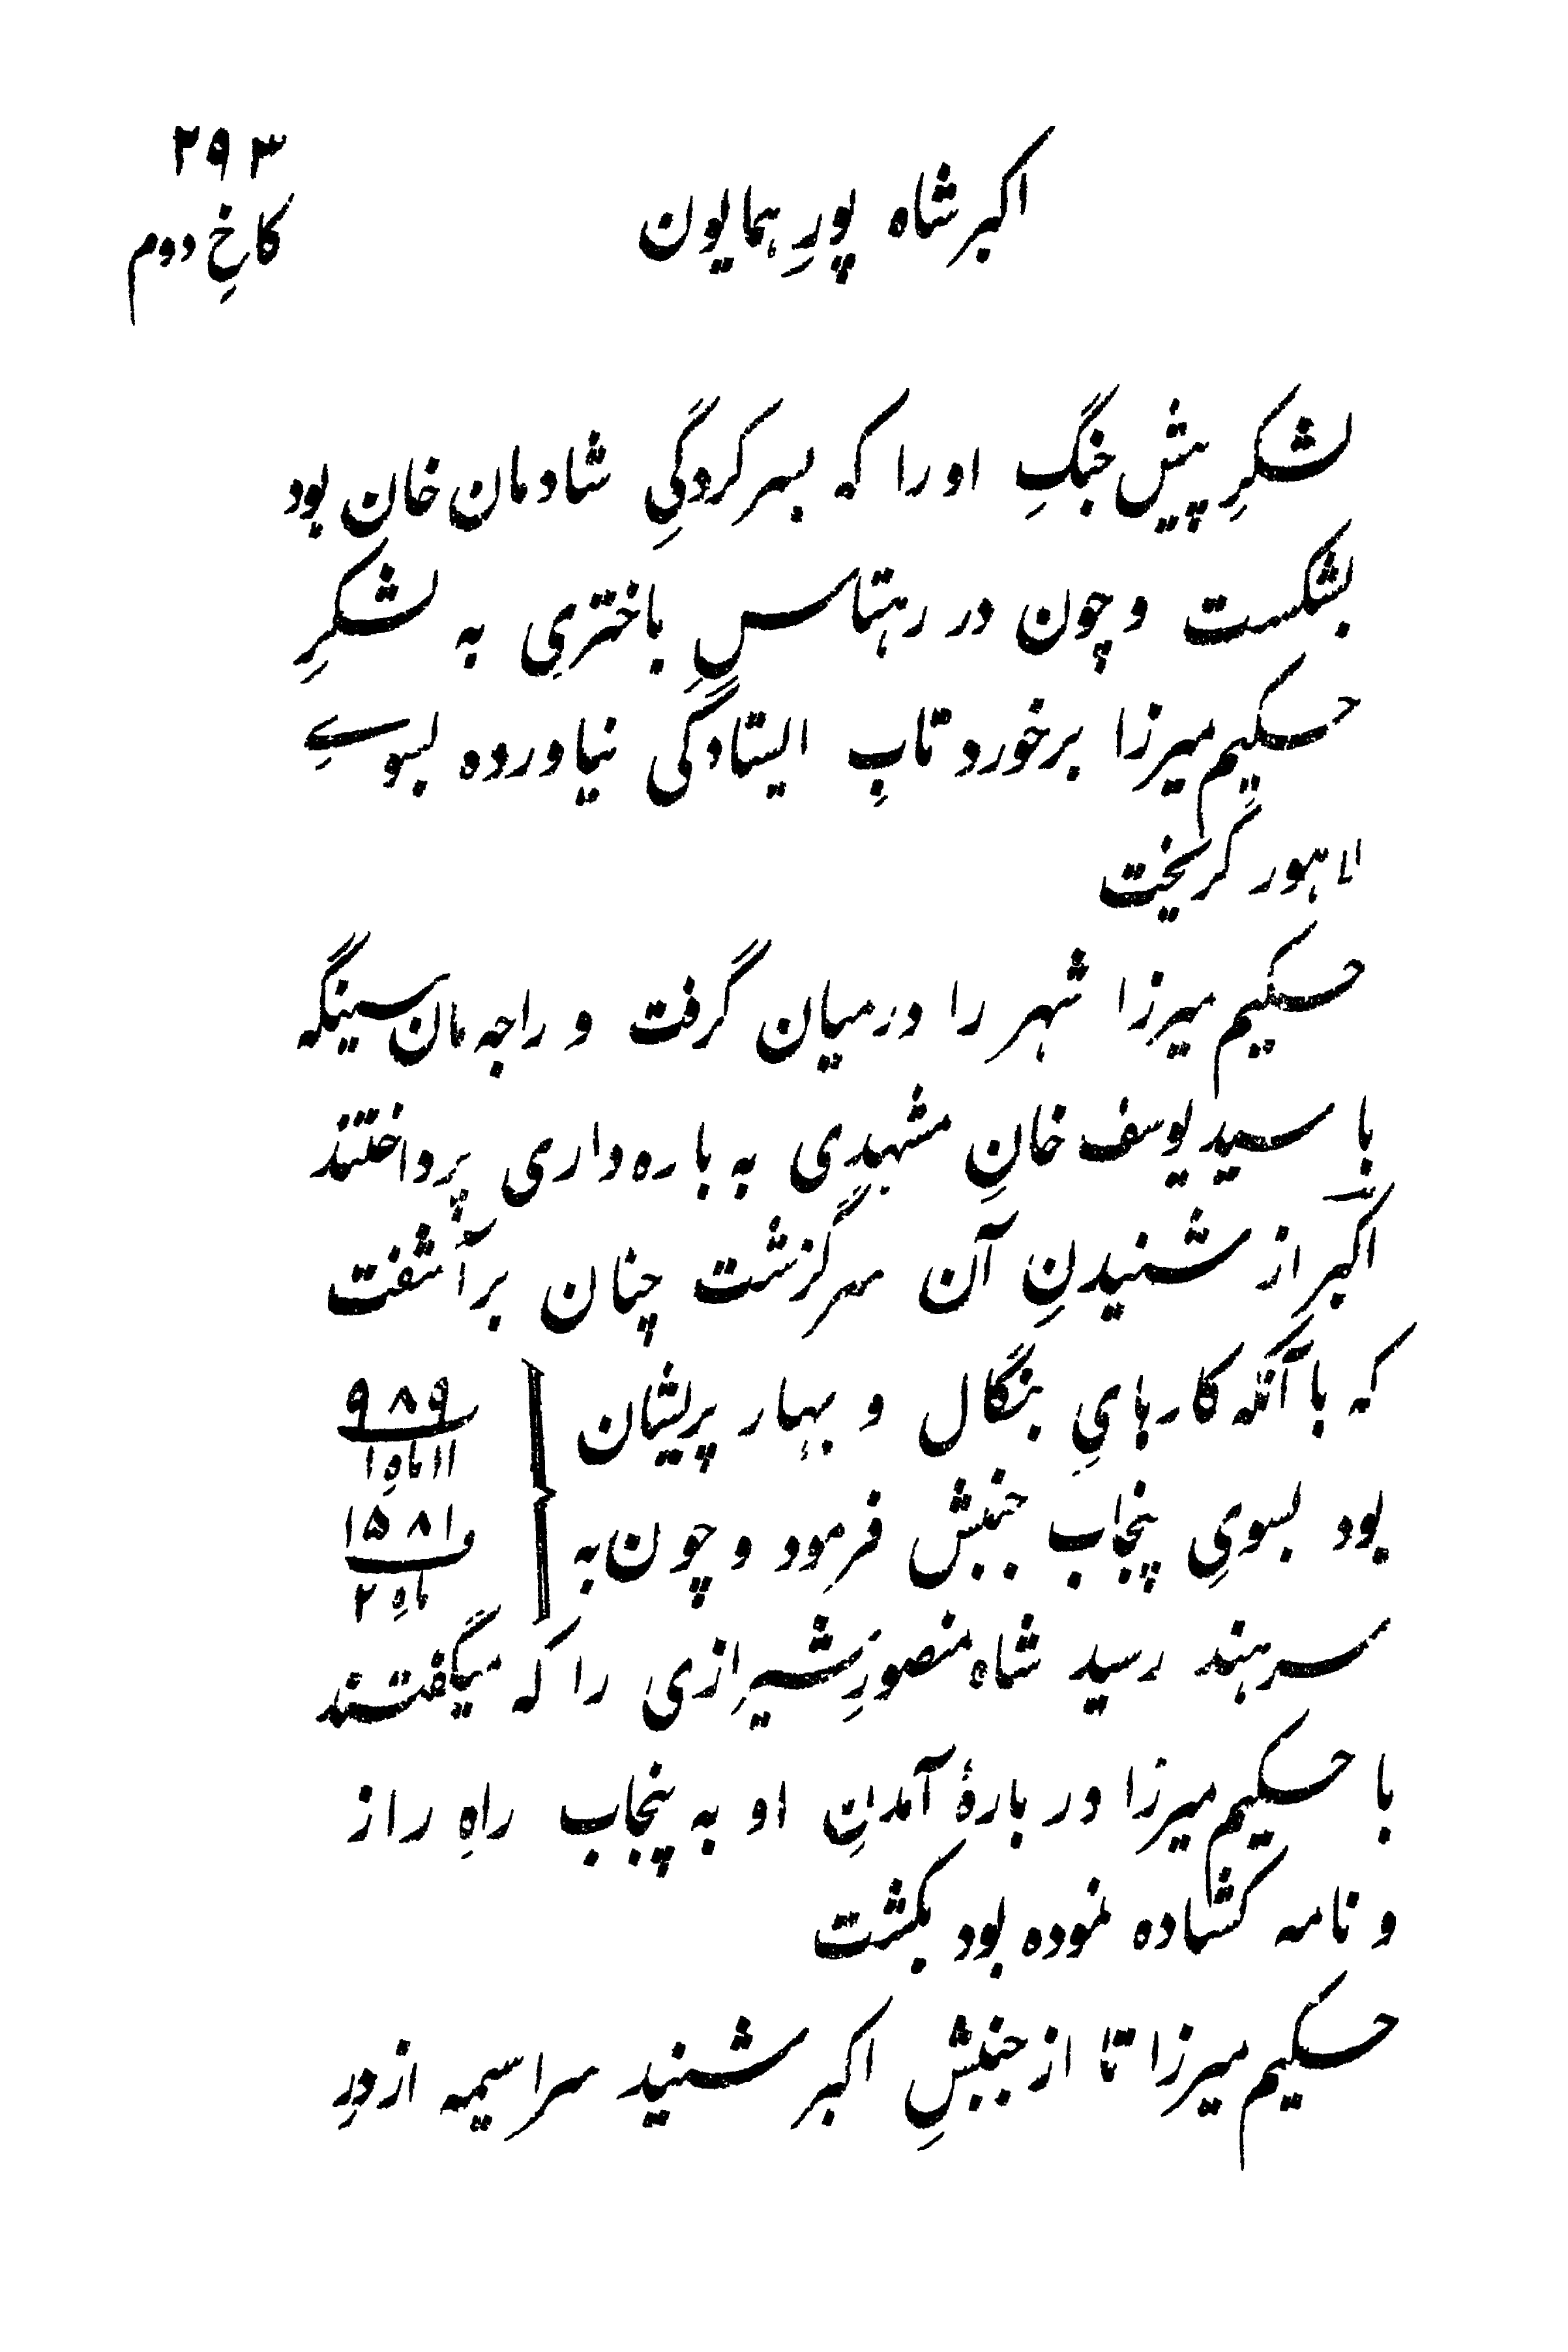 ۲۹۳
کاخِ دوم
اکبر شاه پورِ همایون
لشکرِ پیش جنگِ او را که بسرکردگیِ شادمان خان بود
بشکست و چون در رہتاسِ باختریِ به لشکرِ
حکیم میرزا برخورد تابِ ایستادگی نیاورده بسوےِ
لاهور گریخت
حکیم میرزا شهر را درمیان گرفت و راجه مان سینگه
با سید یوسف خانِ مشهدی به باره داری پرداختند
اکبر از شنیدنِ آن سرگزشت چنان برآشفت
که با آنکه کارهایِ بنگال و بهار پریشان
بود بسویِ پنجاب جنبش فرمود و چون به
۹۸۹
۱۱ ماهِ ۱
و ۱۵۸۱
ماهِ ۲
سرهند رسید شاه منصورِ شیرازی را که میگفتند
با حکیم میرزا در بارهٔ آمدنِ او به پنجاب راهِ راز
و نامه کشاده نموده بود بکشت
حکیم میرزا تا از جنبشِ اکبر شنید سراسیمه از درِ